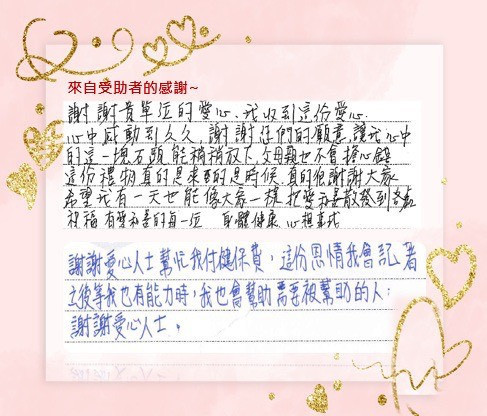 來自受助者的感謝~
謝謝貴單位的愛心,我收到這份愛心.
心中感動到久久,謝謝您們的願意,讓我心中
的這一塊石頭能稍稍放下,父母親也不會擔心錢
這份禮物真的是來的是時候,真的很謝謝大家
希望我有一天也能像大家一樣把愛與善散發到各處
祝福有愛的每一位 身體健康 心想事成
謝謝愛心人士幫忙我付健保費,這份恩情我會記著
立後等我也有能力時,我也會幫助需要被幫助的人:
謝謝愛心人士,